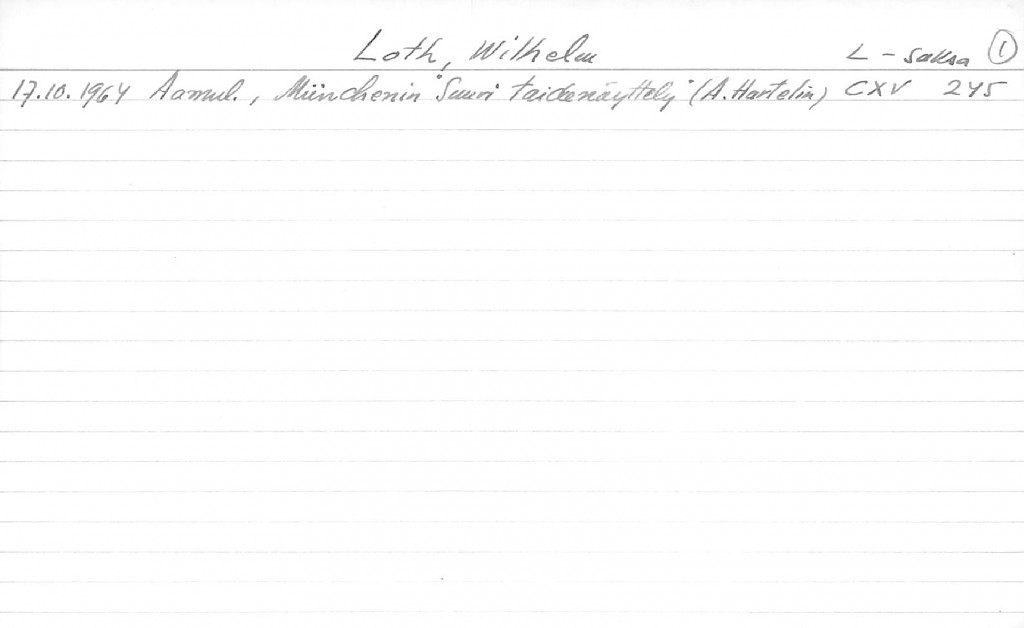 Loth, Wilhelm L - Saksa 1
17.10.1964 Aamul., Münchenin "Suuri taidenäyttely" (A. Hartelin) CXV 245